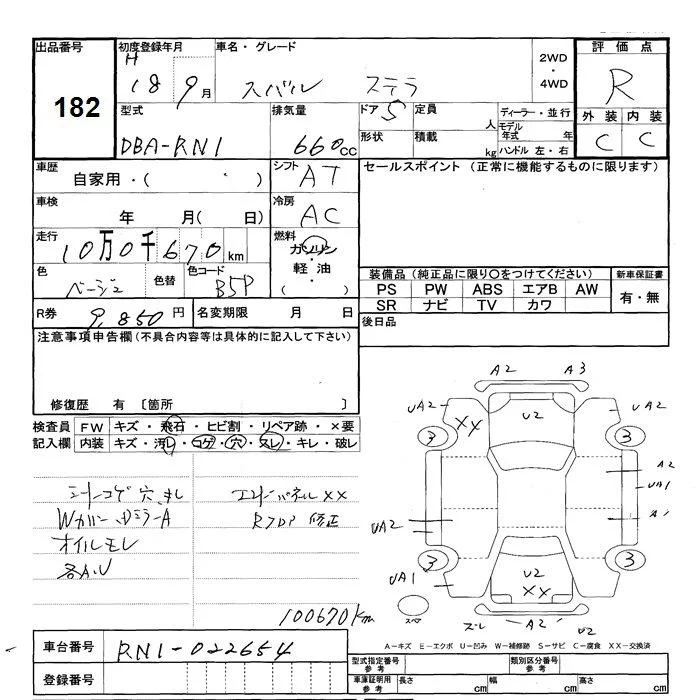 出品番号 初度登録年月 車名・グレード 評価点
182
H 18 9月 スバル ステラ
2WD
・
4WD
R
型式 排気量 ドア 5 定員 人
ディーラー・並行
モデル年式 年
ハンドル 左・右
外装 内装
C C
DBA-RN1 660cc 形状 積載 kg
車歴 自家用・( ) シフト AT
セールスポイント (正常に機能するものに限ります)
車検 年 月( 日) 冷房 AC
走行 10万0千670km 燃料 ガソリン・軽油 ( )
色 ベージュ 色替 色コード B5P
装備品 (純正品に限り○をつけてください) 新車保証書
PS PW ABS エアB AW 有・無
SR ナビ TV カワ
R券 9,850円 名変期限 月 日 後日品
注意事項申告欄(不具合内容等は具体的に記入して下さい)
修復歴 有 〔箇所 〕
検査員 FW キズ・飛石・ヒビ割・リペア跡・×要
記入欄 内装 キズ・汚レ・コゲ・穴・スレ・キレ・破レ
シートコゲ 穴
エンドパネル XX
Wカバー Dミラー A
修正
オイルモレ
100670km
A2 A3
UA2 XX U2 UA2
3 3
A2
UA1
UA2 A1
3 3
UA1 U2 XX
スレ A2 U2
A-キズ E-エクボ U-凹み W-補修跡 S-サビ C-腐食 XX-交換済
車台番号 RN1-022654
登録番号
型式指定番号 参考 類別区分番号 参考
車庫証明用 参考 長さ cm 幅 cm 高さ cm